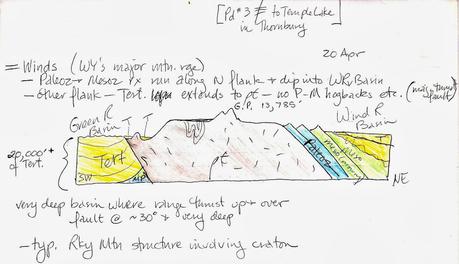 [Pd # 3 to Temple Lake
in Thornbury
20 Apr
= Winds (WY's major mtn. rge)
- Paleoz + Mesoz rx run along N flank + dip into WRv Basin
- other flank - Tert. extends to pЄ - no P-M hogbacks etc. (main thrust
fault)
G.P. 13,785'
Green R
Basin
T T
Wind R
Basin
20,000'+
of Tert.
Tert
pЄ
Paleozoic
Mesozoic
SW
MP
NE
very deep basin where range thrust up + over
fault @ ~30° + very deep
- typ. Rky Mtn structure involving craton